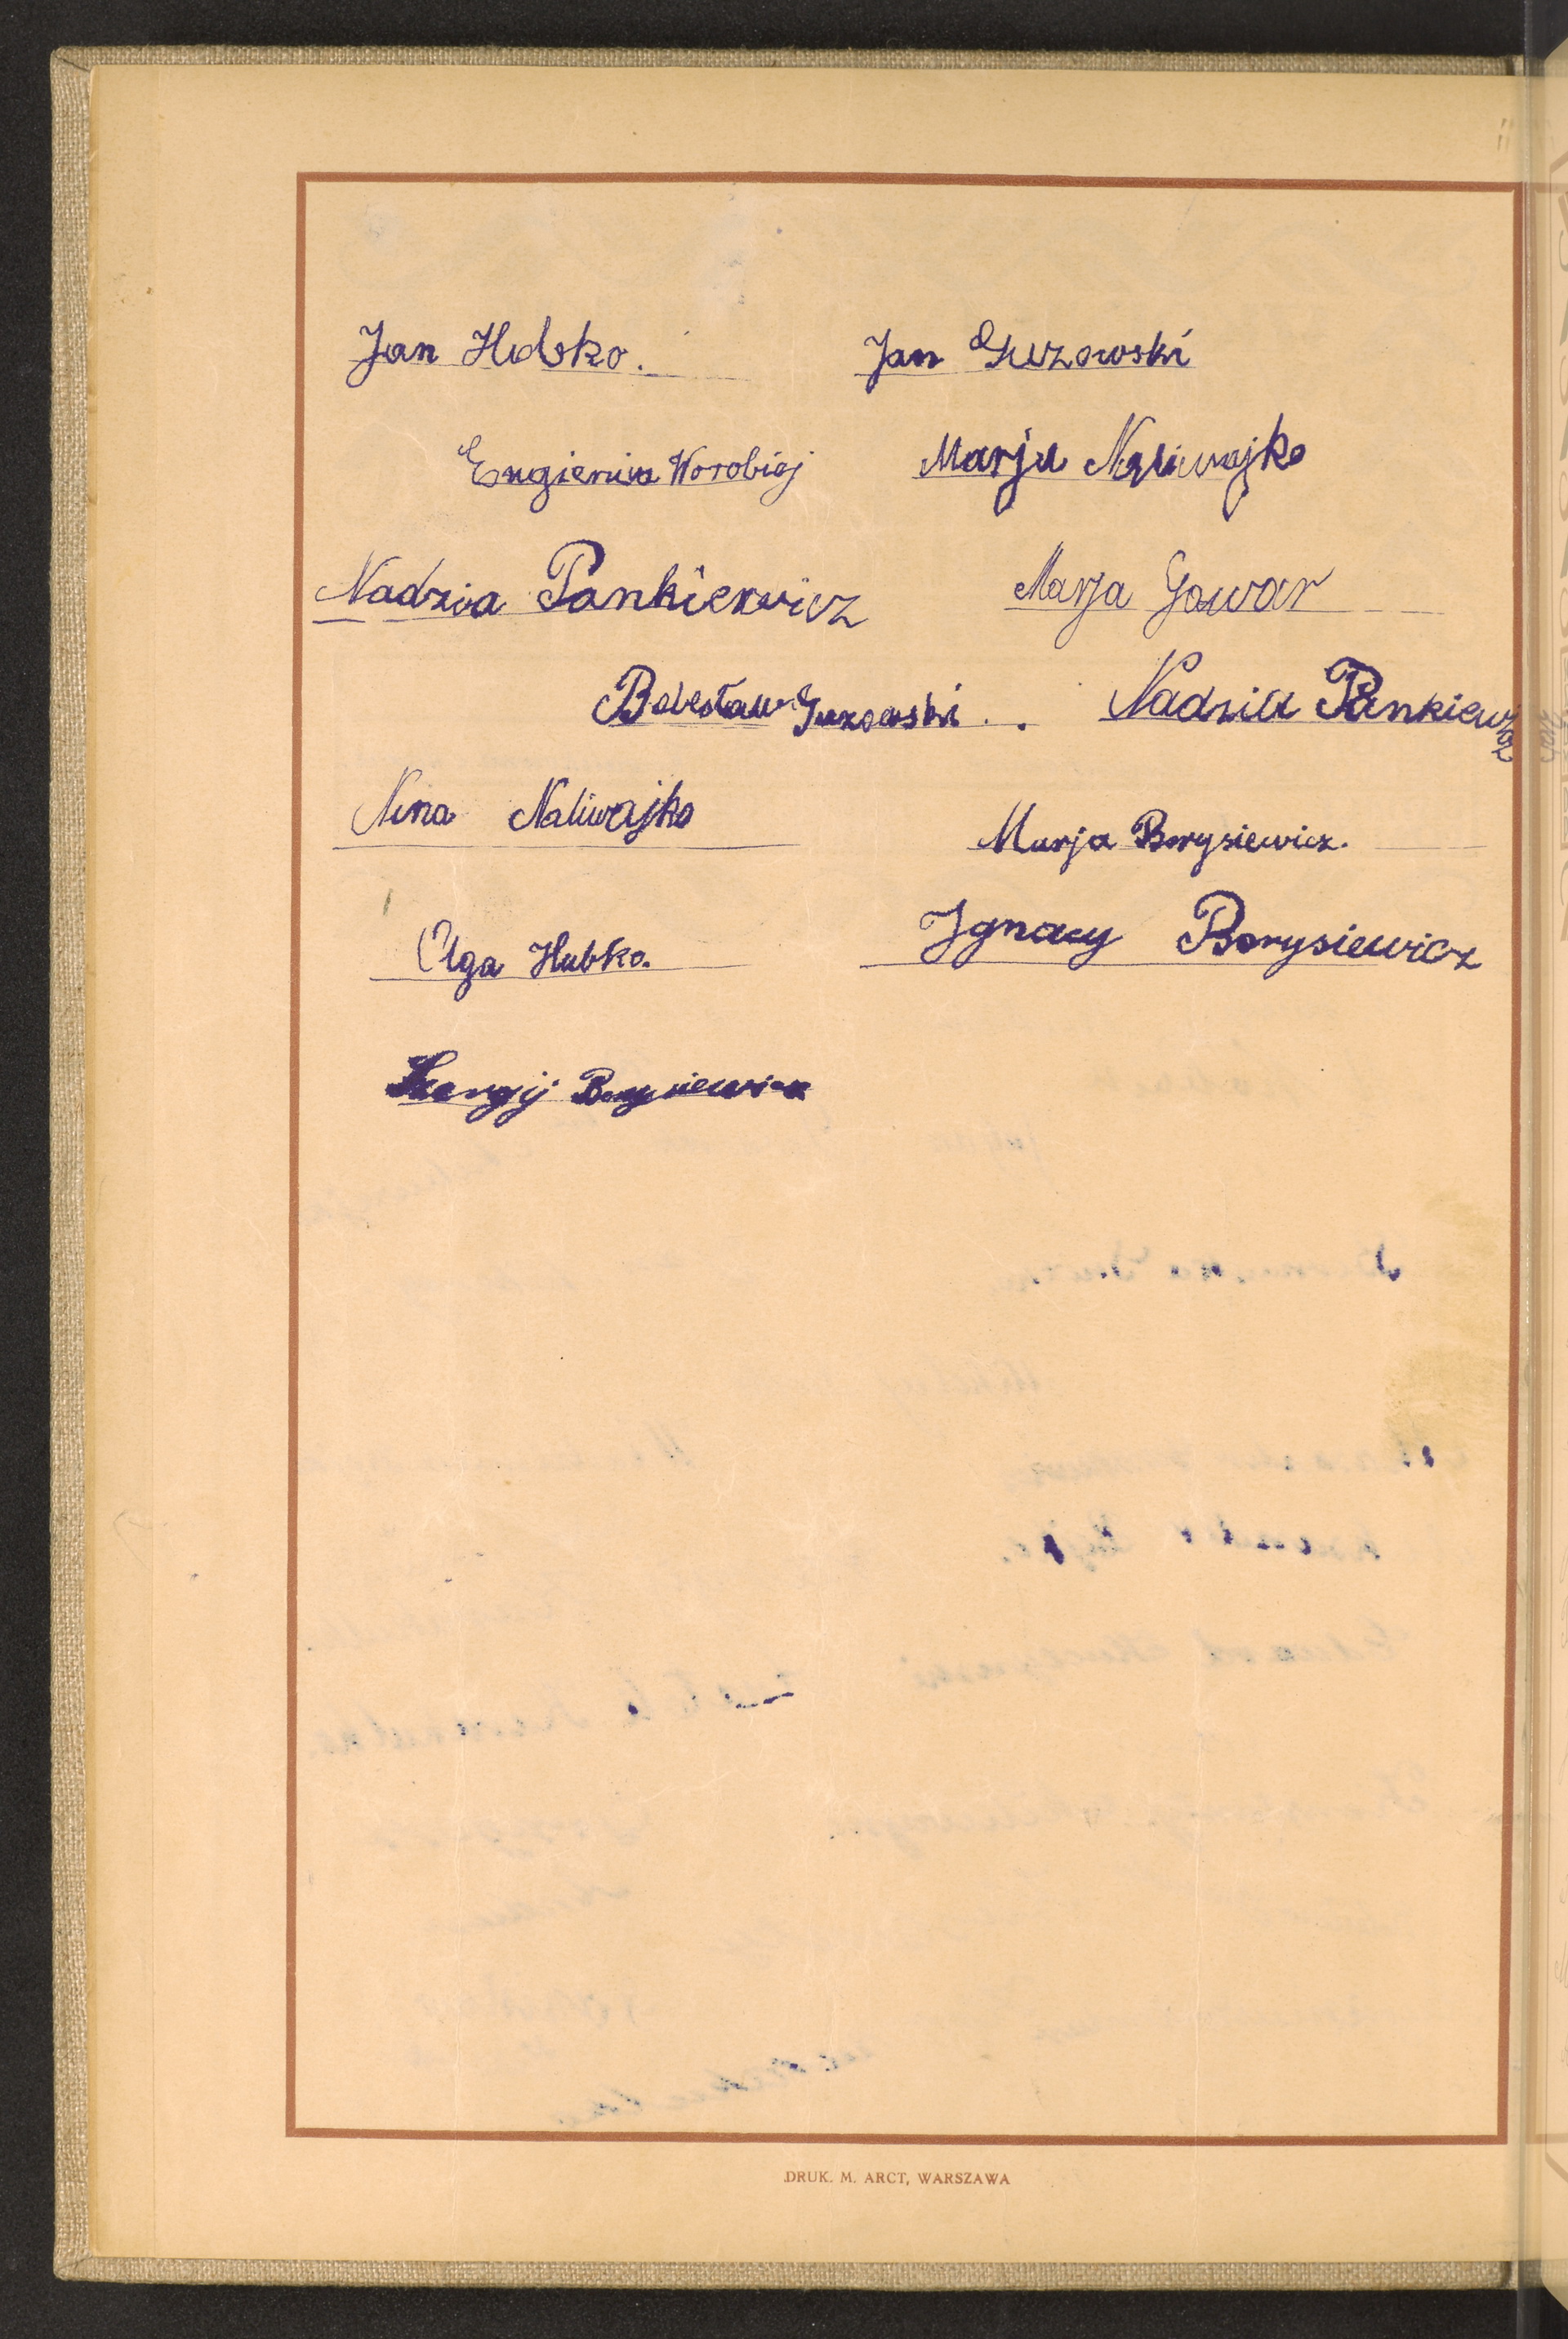 Jan Hubko. Jan Guzowski
Eugienia Worobiej Marja Naliwajko
Nadzia Pankiewicz Marja Gawar
Bolesław Guzowski. Nadzia Pankiewicz
Nina Naliwajko
Marja Borysiewicz.
Olga Hubko. Ignacy Borysiewicz
Szergij Borysiewicz
DRUK. M. ARCT, WARSZAWA